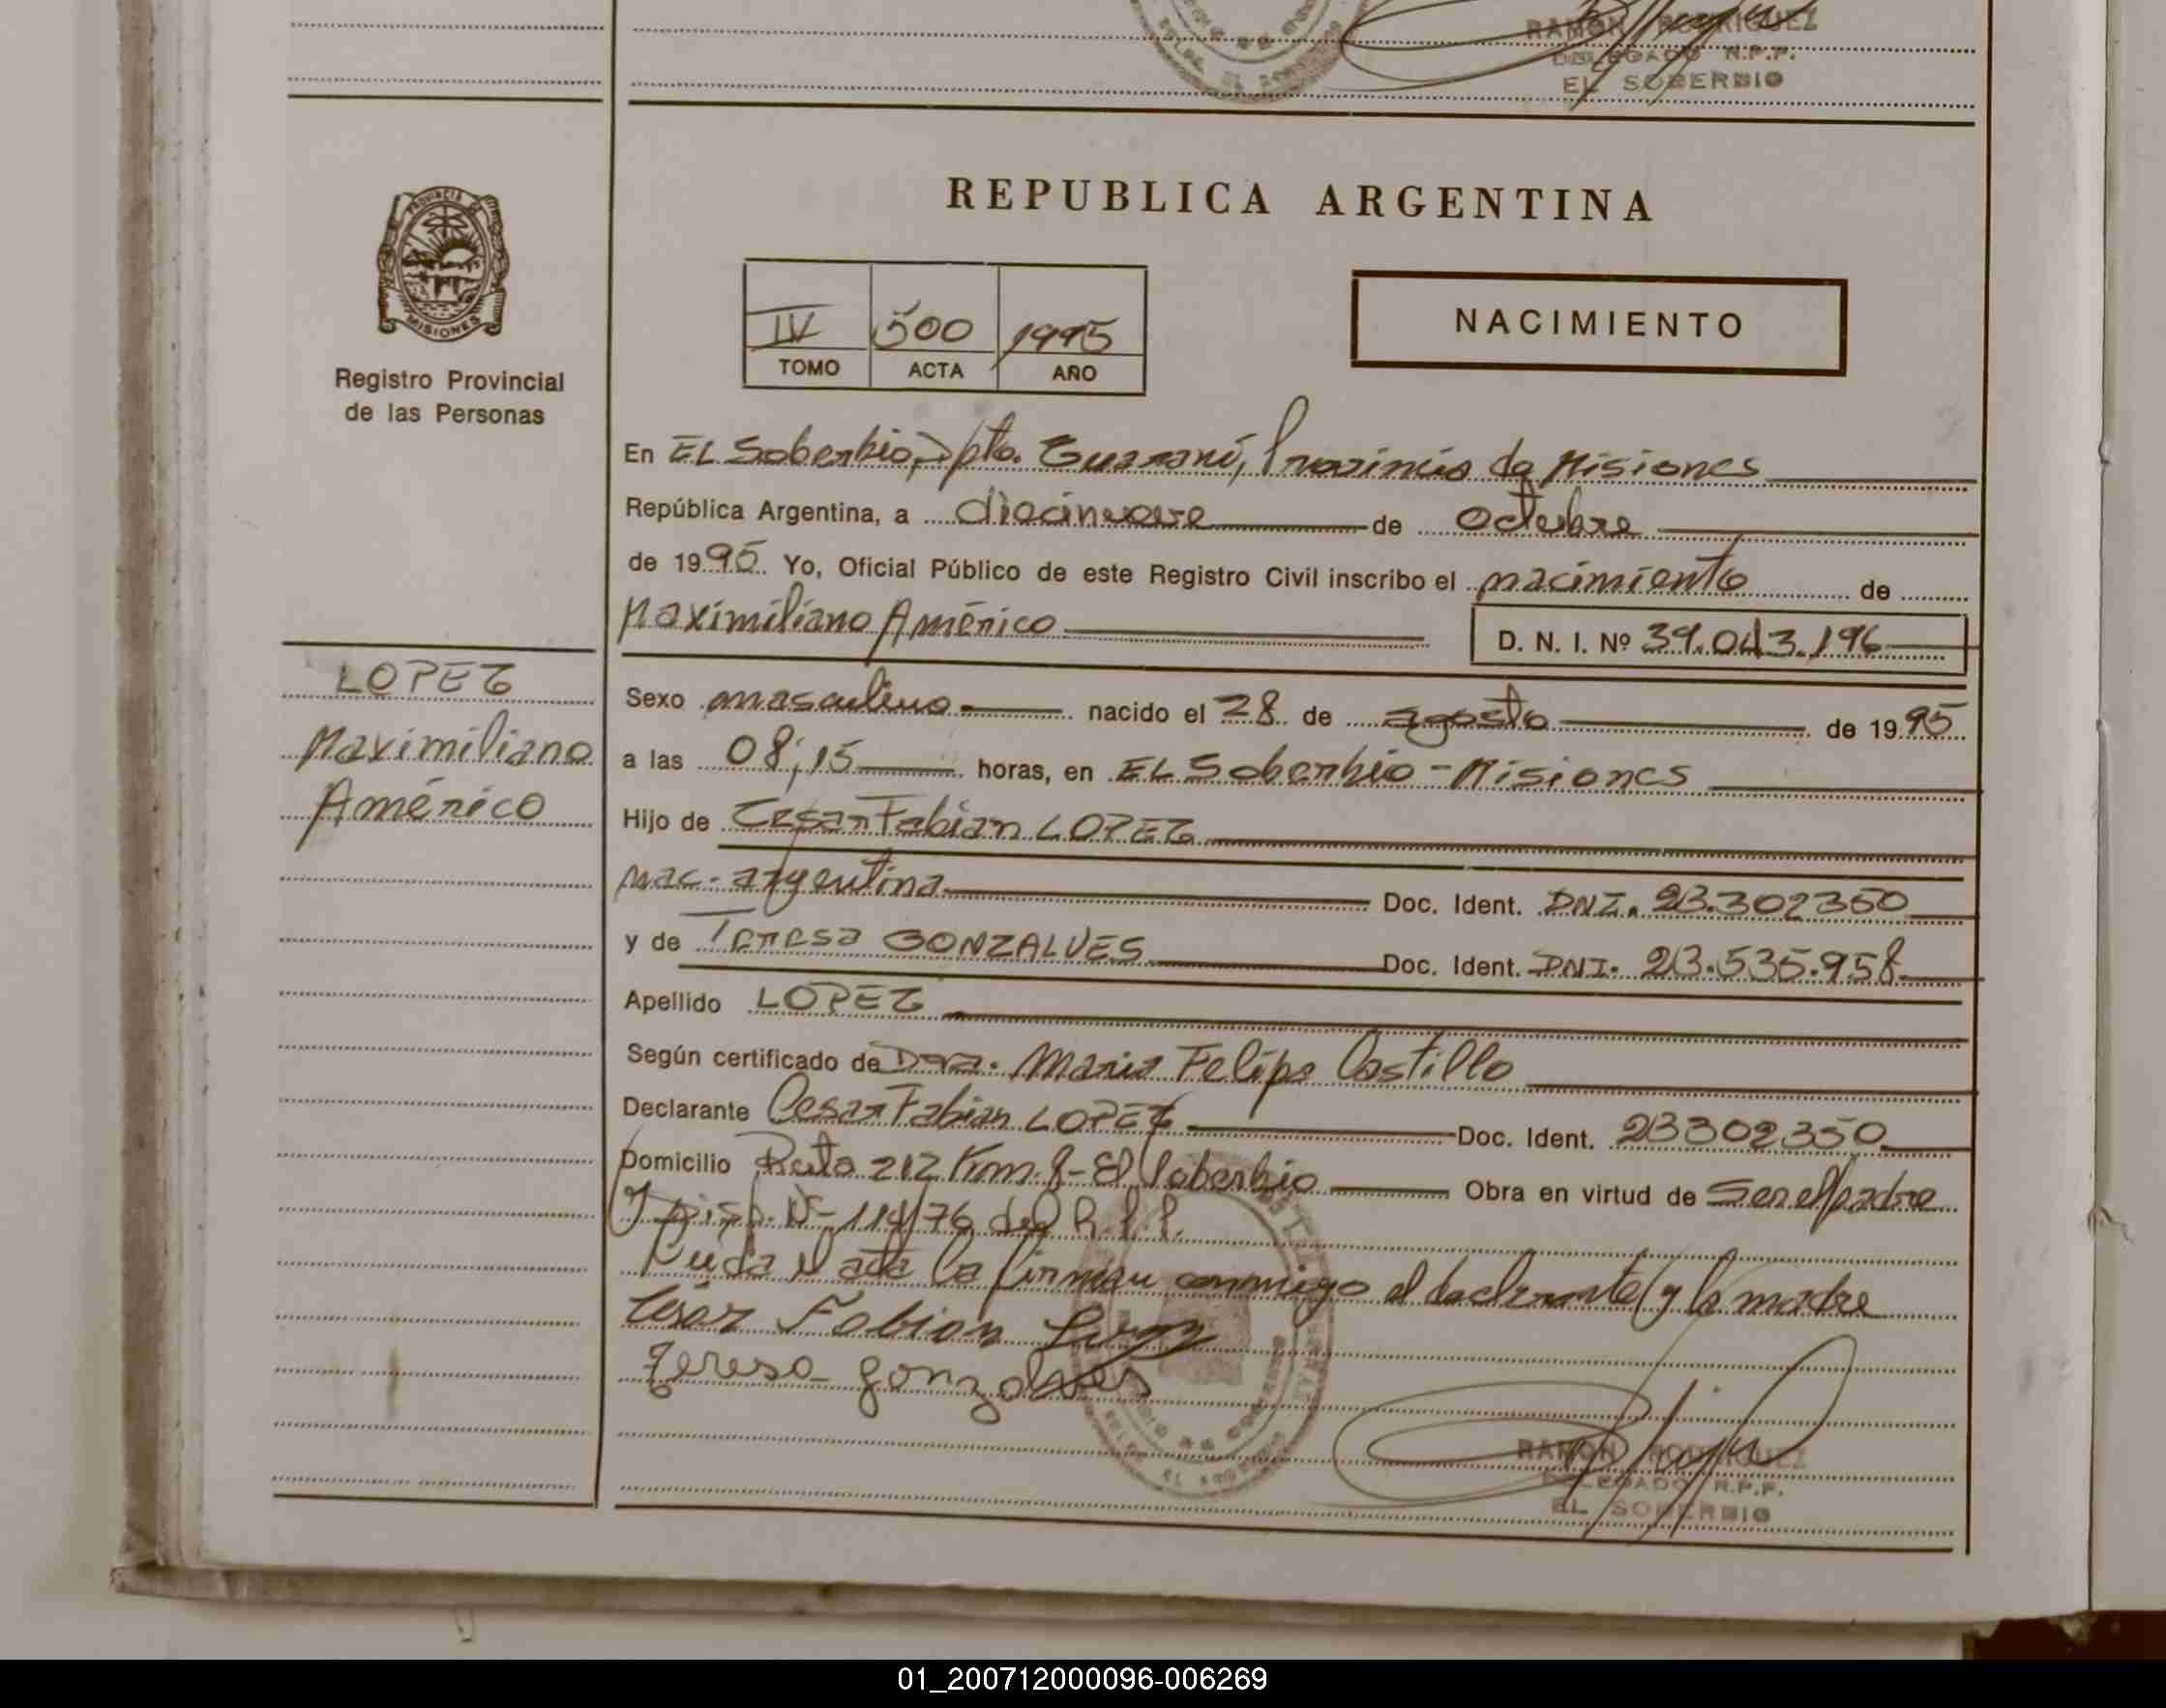 RAMON RODRIGUEZ
DELEGADO R.P.P.
EL SOBERBIO
PROVINCIA DE
MISIONES
Registro Provincial
de las Personas
REPUBLICA ARGENTINA
IV 500 1995
TOMO ACTA AÑO
NACIMIENTO
En EL Soberbio, Dpto. Guaraní, Provincia de Misiones
República Argentina, a diecinueve de octubre
de 1995 Yo, Oficial Público de este Registro Civil inscribo el nacimiento de
Maximiliano Américo
D. N. I. Nº 39.043.196
LOPEZ
Maximiliano
Américo
Sexo masculino nacido el 28 de agosto de 1995
a las 08;15 horas, en EL Soberbio - Misiones
Hijo de Cesar Fabian LOPEZ
nac. argentina Doc. Ident. DNI. 23.302350
y de Teresa GONZALVES Doc. Ident. DNI. 23.535.958
Apellido LOPEZ
Según certificado de Dra. Maria Felipa Castillo
Declarante Cesar Fabian LOPEZ Doc. Ident. 23302350
Domicilio Ruta 212 Km. 8 - El Soberbio Obra en virtud de Ser el padre
y Disp. Nº 114/76 del R.P.P.
Leida el acta la firman conmigo el declarante y la madre
Cesar Fabian Lopez
Teresa gonzalves
RAMON RODRIGUEZ
DELEGADO R.P.P.
EL SOBERBIO
01_200712000096-006269